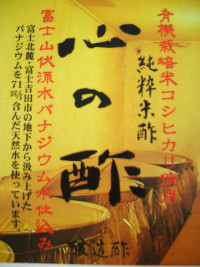 有機栽培米コシヒカリ使用
純粋米酢
心の酢
富士山伏流水バナジウム水仕込み
富士北麓・富士吉田市の地下から汲み上げた
バナジウムを71㎍/ℓ含んだ天然水を使っています。
醸造酢